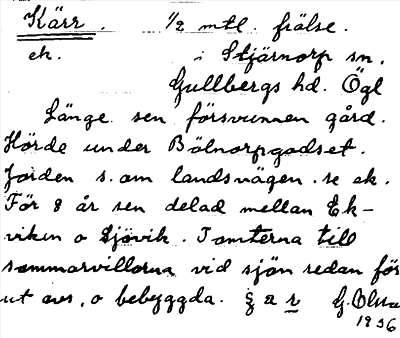 Kärr. 1/2 mtl. frälse.
ek. i Stjärnorp sn.
Gullbergs hd. Ögl
Länge sen försvunnen gård.
Hörde under Bölnorpgodset.
Jorden s. om landsvägen. se ek.
För 8 år sen delad mellan Ek-
viken o Sjövik. Tomterna till
sommarvillorna vid sjön redan för
ut avs. o bebyggda. G. Olsson
1936